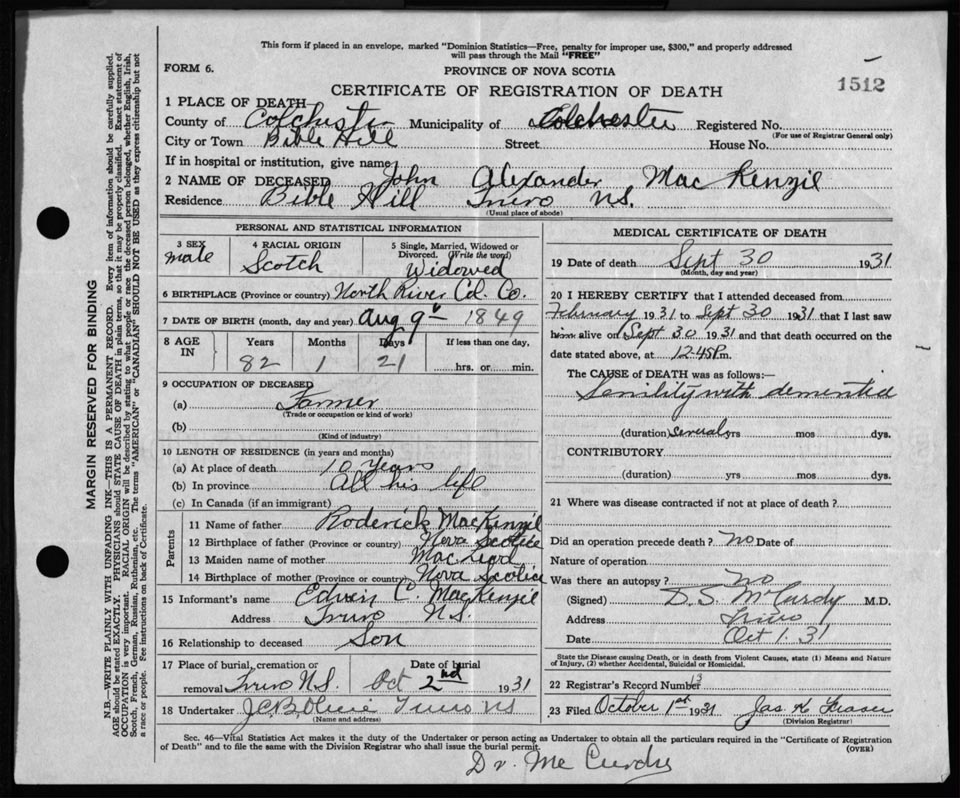 This form if placed in an envelope, marked "Dominion Statistics—Free, penalty for improper use, $300," and properly addressed
will pass through the Mail "FREE"
FORM 6.
PROVINCE OF NOVA SCOTIA
1512
CERTIFICATE OF REGISTRATION OF DEATH
1 PLACE OF DEATH
County of Colchester Municipality of Colchester Registered No.
(For use of Registrar General only)
City or Town Bible Hill Street House No.
If in hospital or institution, give name
2 NAME OF DECEASED John Alexander MacKenzie
Residence Bible Hill Truro N.S.
(Usual place of abode)
PERSONAL AND STATISTICAL INFORMATION
3 SEX male
4 RACIAL ORIGIN Scotch
5 Single, Married, Widowed or Divorced. (Write the word) Widowed
6 BIRTHPLACE (Province or country) North River Col. Co.
7 DATE OF BIRTH (month, day and year) Aug 9th 1849
8 AGE IN Years Months Days If less than one day,
82 1 21 hrs. or min.
9 OCCUPATION OF DECEASED
(a) Farmer
(Trade or occupation or kind of work)
(b)
(Kind of industry)
10 LENGTH OF RESIDENCE (in years and months)
(a) At place of death 10 years
(b) In province all his life
(c) In Canada (if an immigrant)
Parents
11 Name of father Roderick MacKenzie
12 Birthplace of father (Province or country) Nova Scotia
13 Maiden name of mother MacLeod
14 Birthplace of mother (Province or country) Nova Scotia
15 Informant's name Edwin C. MacKenzie
Address Truro N.S.
16 Relationship to deceased Son
17 Place of burial, cremation or removal Truro N.S.
Date of burial Oct 2nd 1931
18 Undertaker J.C.B. Truro NS
(Name and address)
MEDICAL CERTIFICATE OF DEATH
19 Date of death Sept 30 1931
(Month, day and year)
20 I HEREBY CERTIFY that I attended deceased from
February 1931 to Sept 30 1931 that I last saw
him alive on Sept 30 1931 and that death occurred on the
date stated above, at 12.45 P.m.
The CAUSE of DEATH was as follows:—
Senility with demented
(duration) several yrs mos dys.
CONTRIBUTORY
(duration) yrs mos dys.
21 Where was disease contracted if not at place of death?
Did an operation precede death? No Date of
Nature of operation
Was there an autopsy? No
(Signed) D.S. McCurdy M.D.
Address Truro
Date Oct 1. 31
State the Disease causing Death, or in death from Violent Causes, state (1) Means and Nature
of Injury, (2) whether Accidental, Suicidal or Homicidal.
22 Registrar's Record Number 13
23 Filed October 1st 1931 Jas H Fraser
(Division Registrar)
Sec. 46—Vital Statistics Act makes it the duty of the Undertaker or person acting as Undertaker to obtain all the particulars required in the "Certificate of Registration
of Death" and to file the same with the Division Registrar who shall issue the burial permit.
(OVER)
Dr. McCurdy
MARGIN RESERVED FOR BINDING
N.B.—WRITE PLAINLY WITH UNFADING INK—THIS IS A PERMANENT RECORD. Every item of information should be carefully supplied.
AGE should be stated EXACTLY. PHYSICIANS should STATE CAUSE OF DEATH in plain terms, so that it may be properly classified. Exact statement of
OCCUPATION is very important. RACIAL ORIGIN will be described by stating to what people or race the deceased person belonged, whether English, Irish,
Scotch, French, German, Russian, Ruthenian, etc. The terms "AMERICAN" or "CANADIAN" SHOULD NOT BE USED as they express citizenship but not
a race or people. Fee instructions on back of Certificate.